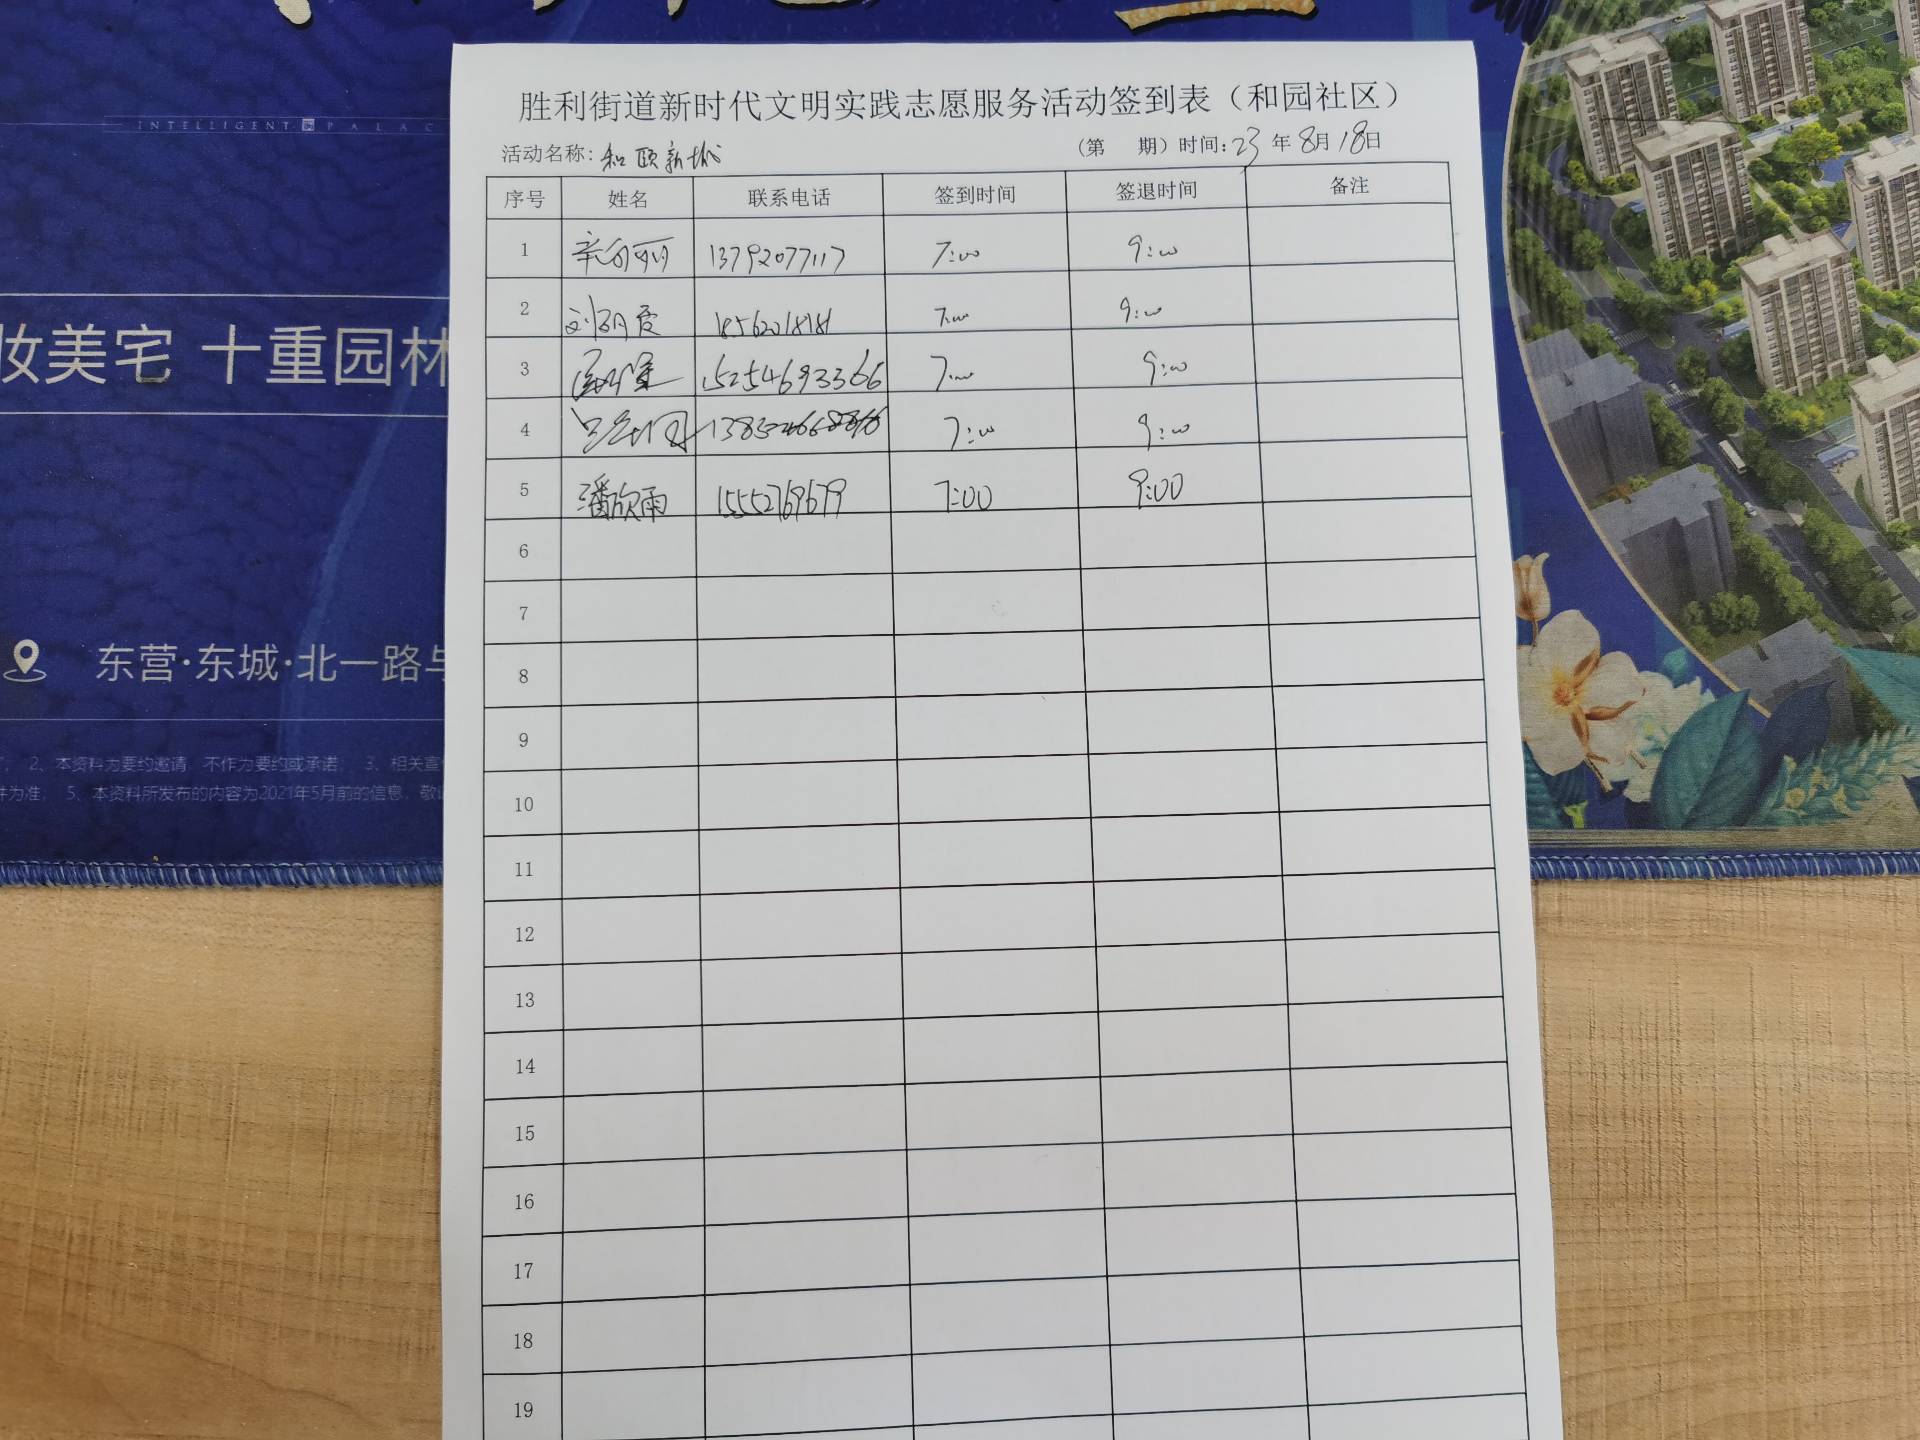 INTELLIGENT PALAC
妆美宅 十重园林
东营·东城·北一路与
2、本资料为要约邀请，不作为要约或承诺； 3、相关宣传
件为准； 5、本资料所发布的内容为2021年5月前的信息，敬请
胜利街道新时代文明实践志愿服务活动签到表（和园社区）
活动名称：和颐新城 （第 期）时间：23年8月18日
序号 姓名 联系电话 签到时间 签退时间 备注
1 13792077117 7:00 9:00
2 7:00 9:00
3 15254693366 7:00 9:00
4 7:00 9:00
5 潘欣雨 15552769679 7:00 9:00
6
7
8
9
10
11
12
13
14
15
16
17
18
19